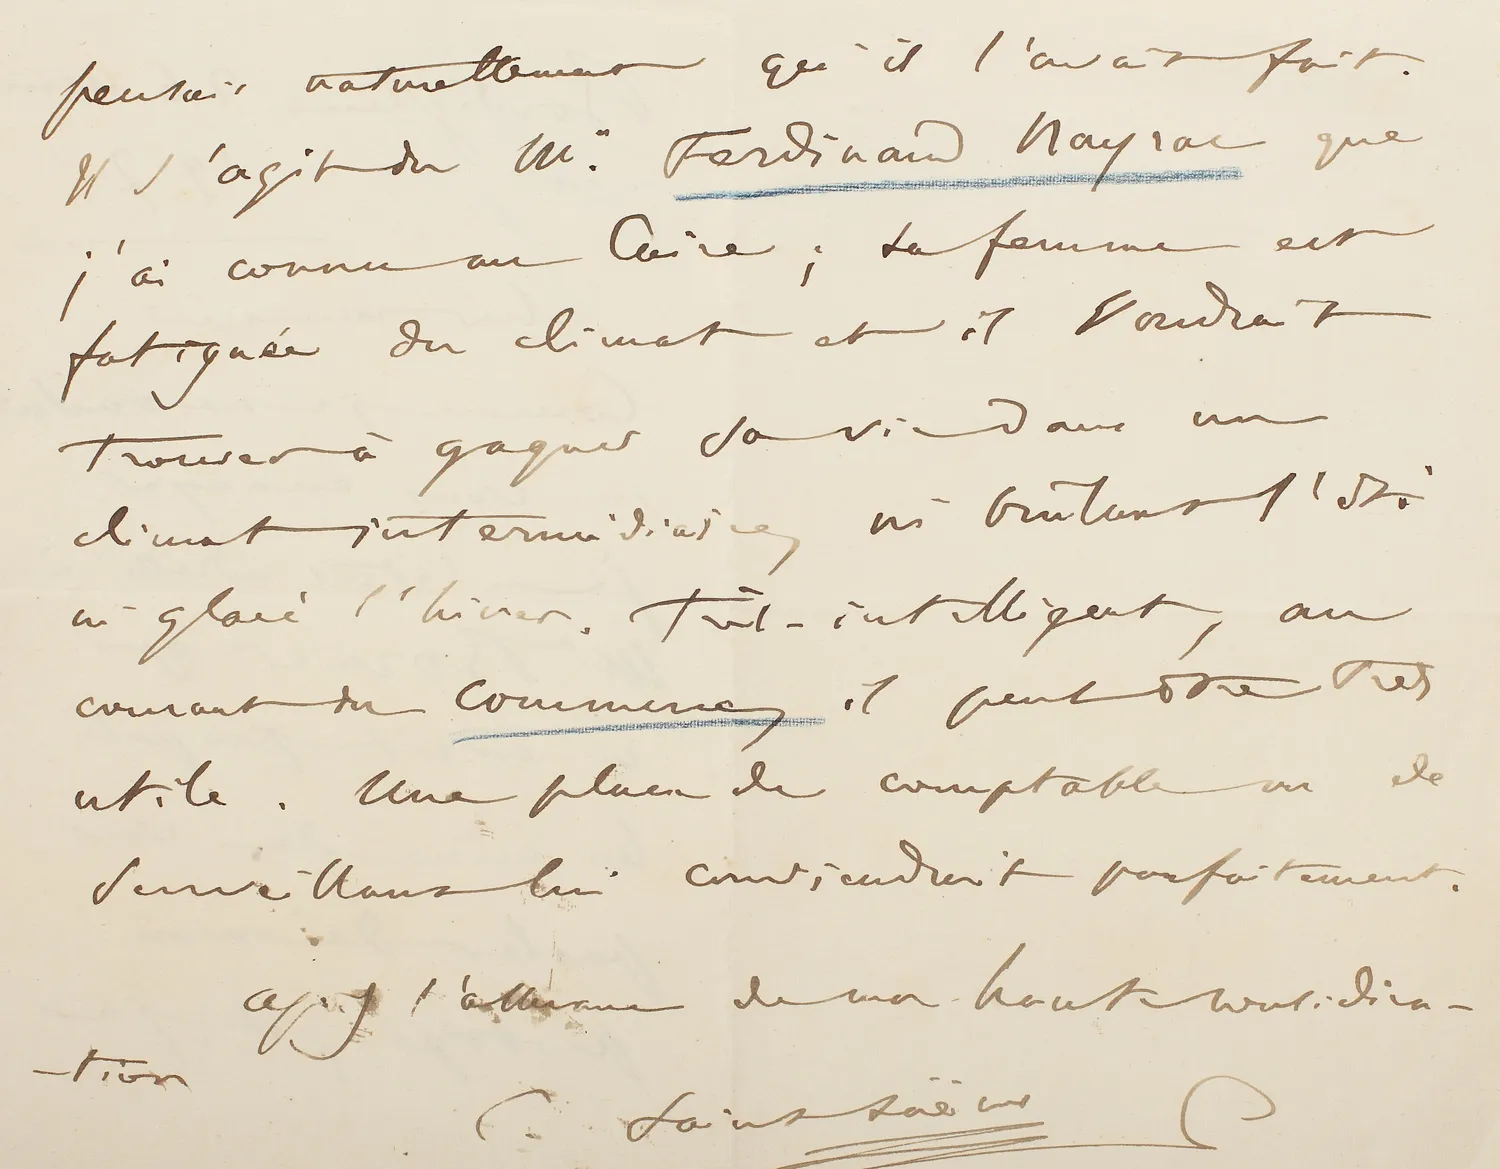 pensais naturellement qu'il l'avait fait.
Il s'agit du Mr. Ferdinand Nayrac que
j'ai connu au Caire ; sa femme est
fatiguée du climat et il voudrait
trouver à gagner sa vie dans un
climat intermédiaire, ni brûlant l'été
ni glacé l'hiver. Très-intelligent, au
courant du commerce, il peut être très
utile. Une place de comptable ou de
surveillant lui conviendrait parfaitement.
de ma haute considéra-
-tion
C. Saint-Saëns